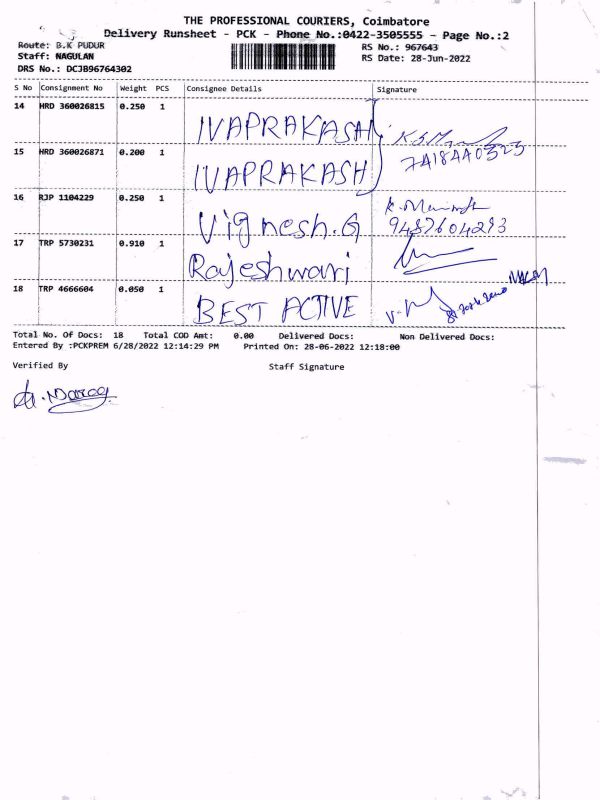 THE PROFESSIONAL COURIERS, Coimbatore
Delivery Runsheet - PCK - Phone No.:0422-3505555 - Page No.:2
Route: B.K PUDUR RS No.: 967643
Staff: NAGULAN RS Date: 28-Jun-2022
DRS No.: DCJB96764302
S No Consignment No Weight PCS Consignee Details Signature
14 HRD 360026815 0.250 1
IVAPRAKASH
7418440323
15 HRD 360026871 0.200 1
IVAPRAKASH
16 RJP 1104229 0.250 1
Vignesh.G 9487604293
17 TRP 5730231 0.910 1
Rajeshwari
18 TRP 4666604 0.050 1
BEST ACTIVE
Total No. Of Docs: 18 Total COD Amt: 0.00 Delivered Docs: Non Delivered Docs:
Entered By :PCKPREM 6/28/2022 12:14:29 PM Printed On: 28-06-2022 12:18:00
Verified By Staff Signature